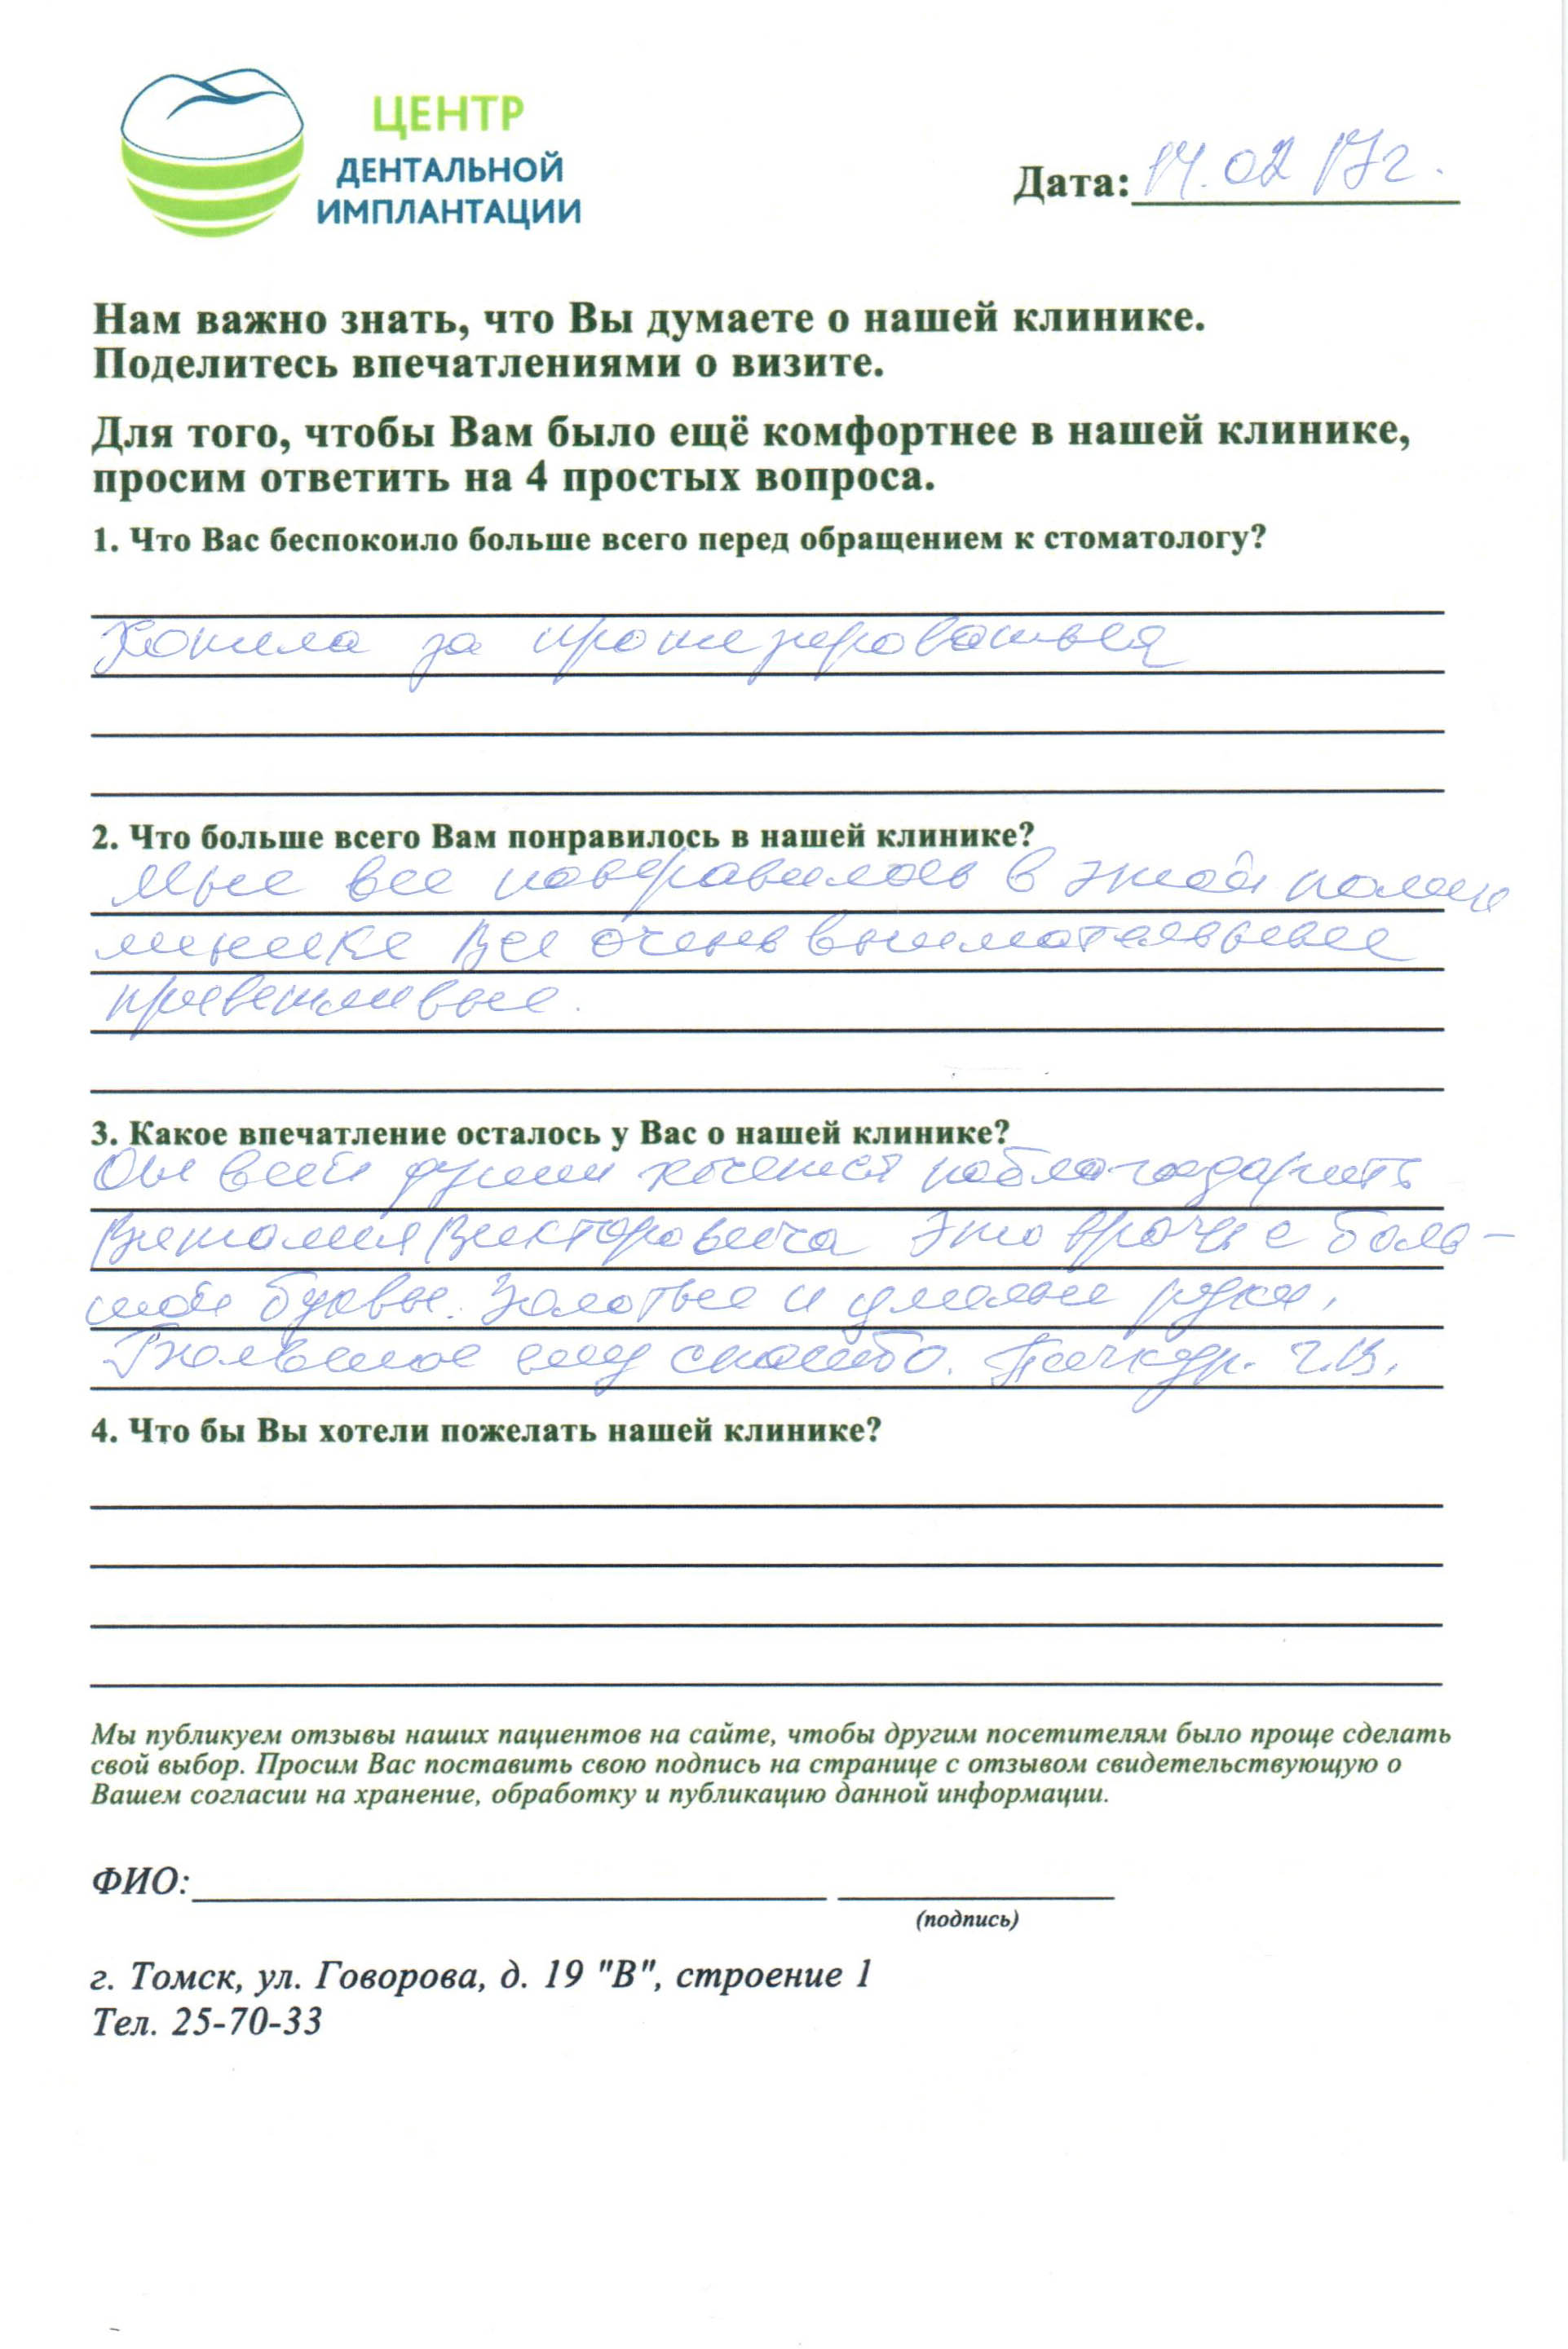 ЦЕНТР
ДЕНТАЛЬНОЙ
ИМПЛАНТАЦИИ
Дата: 14.02 17г.
Нам важно знать, что Вы думаете о нашей клинике.
Поделитесь впечатлениями о визите.
Для того, чтобы Вам было ещё комфортнее в нашей клинике,
просим ответить на 4 простых вопроса.
1. Что Вас беспокоило больше всего перед обращением к стоматологу?
Хотела за протезироваться
2. Что больше всего Вам понравилось в нашей клинике?
Мне все понравилось в этой
Все очень внимательные
приветливые.
3. Какое впечатление осталось у Вас о нашей клинике?
От всей души хочется поблагодарить
Виталия Викторовича Это врач с боль-
шой буквы. Золотые и умелые руки,
Большое ему спасибо. Пичкур. Г.В.
4. Что бы Вы хотели пожелать нашей клинике?
Мы публикуем отзывы наших пациентов на сайте, чтобы другим посетителям было проще сделать
свой выбор. Просим Вас поставить свою подпись на странице с отзывом свидетельствующую о
Вашем согласии на хранение, обработку и публикацию данной информации.
ФИО:
(подпись)
г. Томск, ул. Говорова, д. 19 "В", строение 1
Тел. 25-70-33